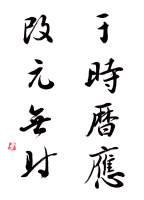 于時暦應
改元無射